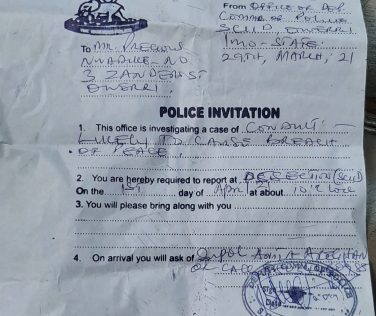 From OFFICE OF DEP.
COMMR OF POLICE
SCIID, OWERRI
IMO-STATE.
29TH, MARCH, 21
To MR. PRECIOUS
NWADIKE - NO
3 ZANDERS ST
OWERRI.
POLICE INVITATION
1. This office is investigating a case of CONDUCT -
LIKELY TO CAUSE BREACH
OF PEACE
2. You are hereby required to report at SCIID
On the 1ST day of April at about 10 O'clock
3. You will please bring along with you
4. On arrival you will ask of
Date